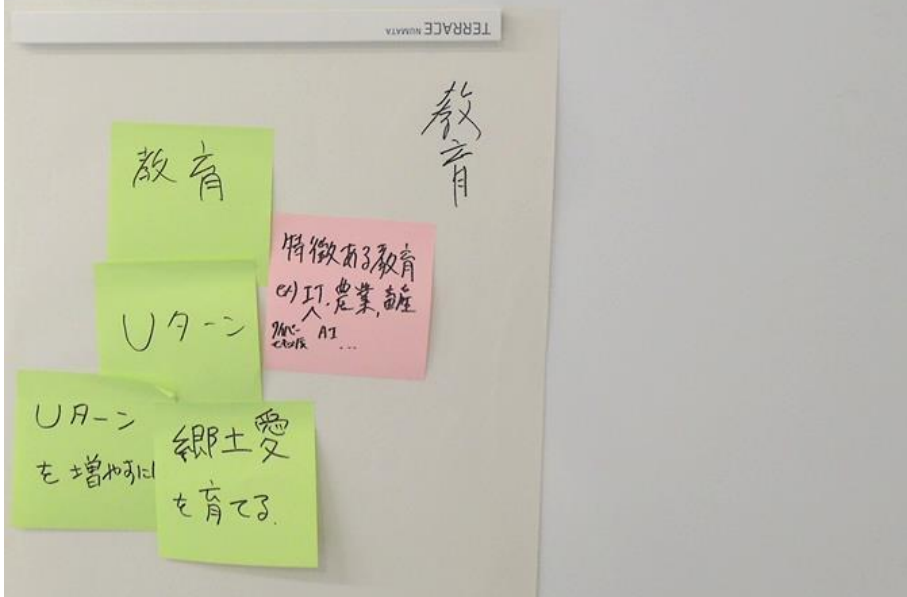 TERRACE NUMATA
教育
教育
特徴ある教育
ex) IT、農業、畜産
サイバーセキュリティ AI
...
Uターン
Uターン
を増やすに
郷土愛
を育てる